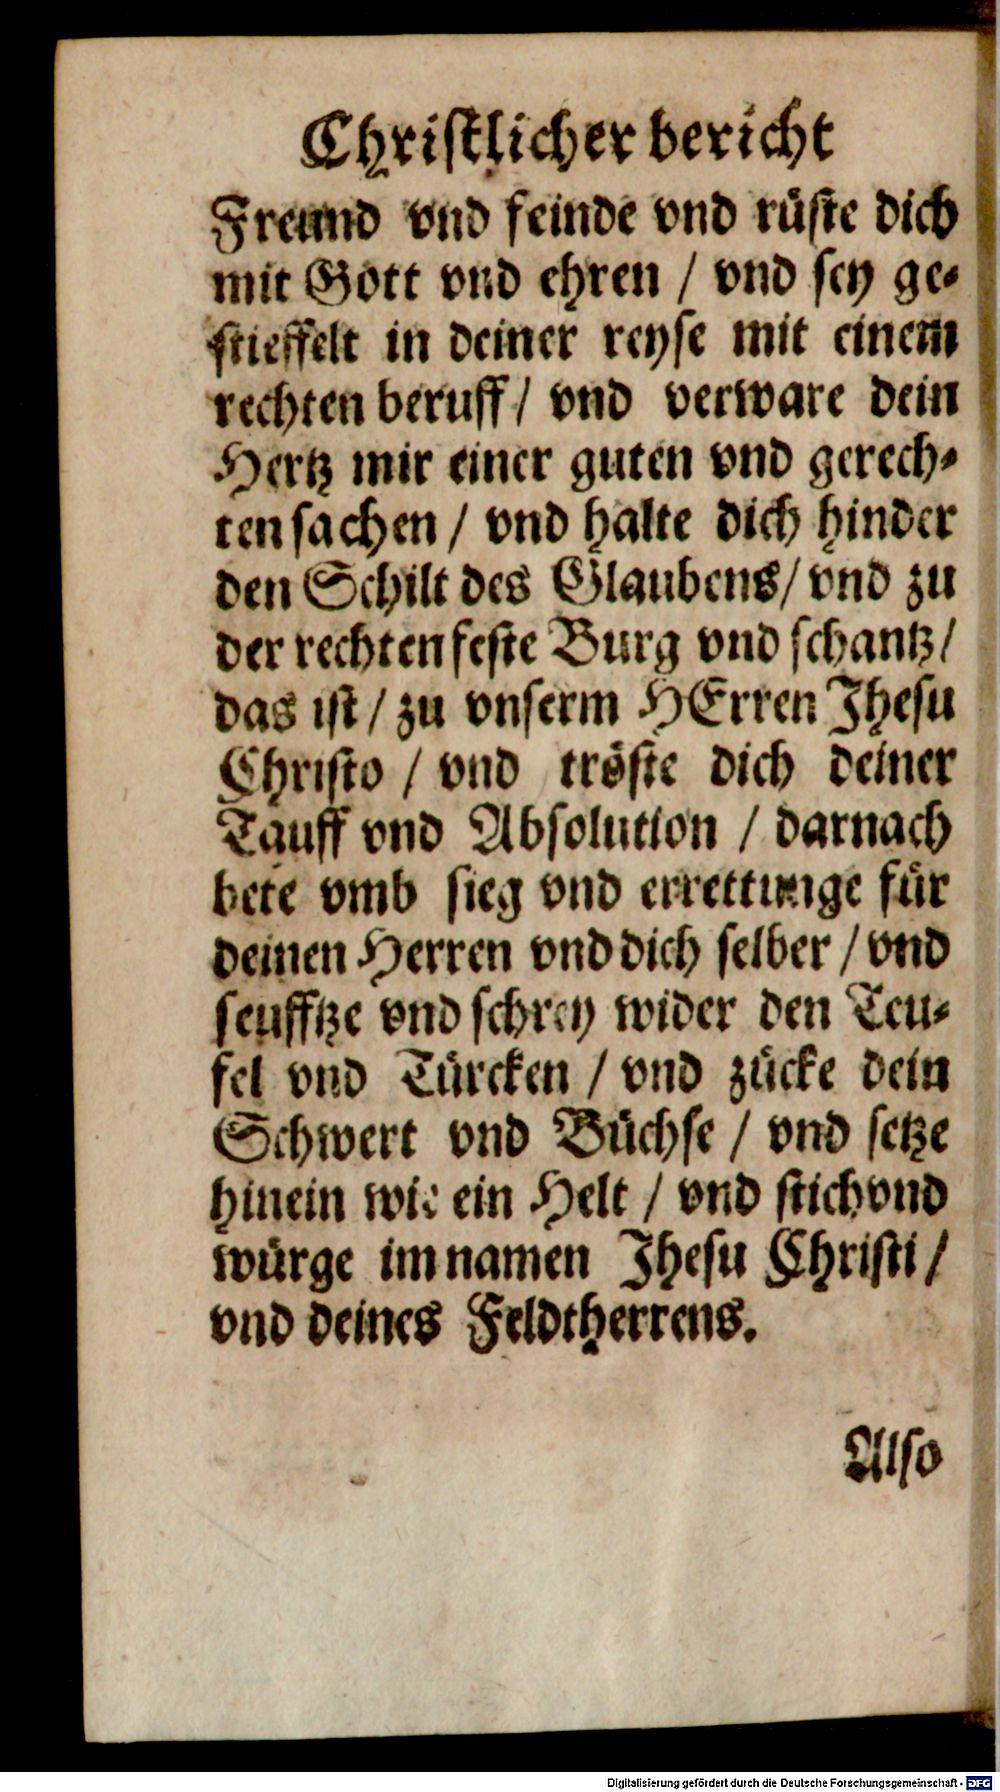 Christlicher bericht
Freund vnd feinde vnd rüste dich
mit Gott vnd ehren / vnd sey ge-
stieffelt in deiner reyse mit einem
rechten beruff / vnd verware dein
Hertz mir einer guten vnd gerech-
ten sachen / vnd halte dich hinder
den Schilt des Glaubens / vnd zu
der rechten feste Burg vnd schantz /
das ist / zu vnserm HErren Jhesu
Christo / vnd tröste dich deiner
Tauff vnd Absolution / darnach
bete vmb sieg vnd errettunge für
deinen Herren vnd dich selber / vnd
seufftze vnd schrey wider den Teu-
fel vnd Türcken / vnd zücke dein
Schwert vnd Büchse / vnd setze
hinein wie ein Helt / vnd stich vnd
würge im namen Jhesu Christi /
vnd deines Feldtherrens.
Also
Digitalisierung gefördert durch die Deutsche Forschungsgemeinschaft - DFG